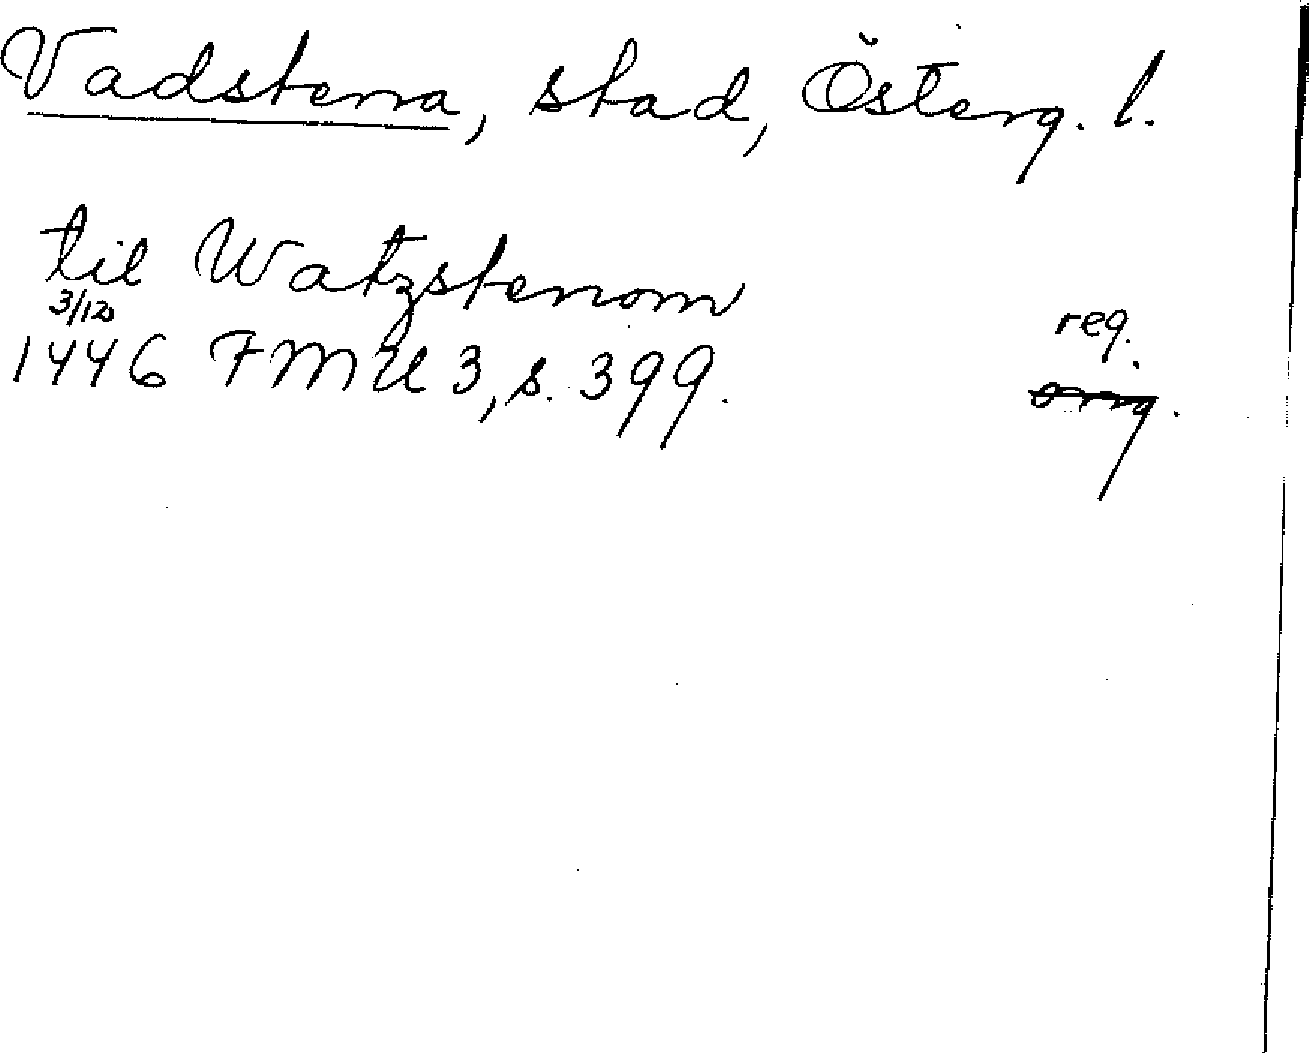 Vadstena, stad, Österg. l.
til Watzstenom
3/12
1446 FMU 3, s. 399.
reg.
orig.